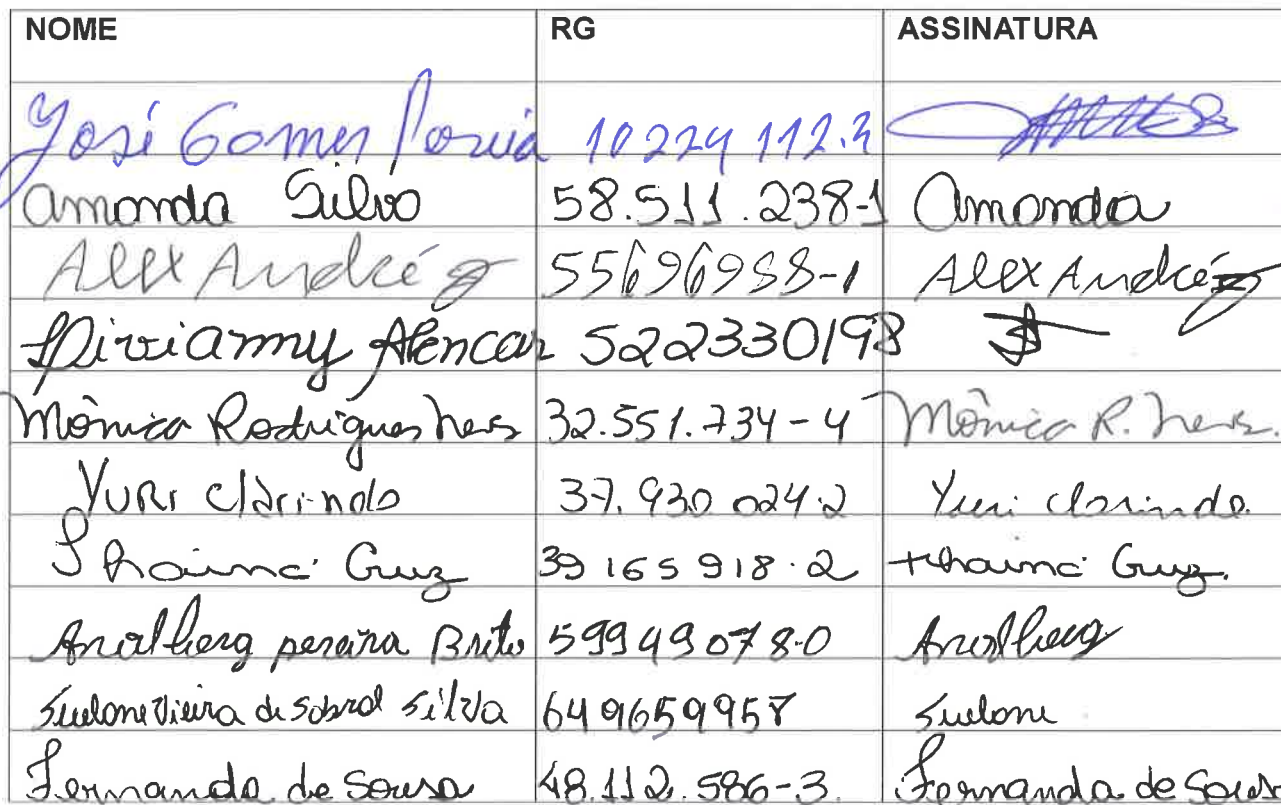 NOME RG ASSINATURA
José Gomes 10224112.2
Amanda Silva 58.511.238-1 Amanda
Alex André 55696988-1 Alex André
Alencar 522330198
Mônica Rodrigues Neves 32.551.734-4 Mônica R. Neves.
Yuri Clarindo 37.930 024.2 Yuri Clarindo.
Thainá Cruz 39 165 918.2 Thainá Cruz.
pereira Brito 59949078-0
Suelone Vieira de Sobral Silva 649659957 Suelone
Fernanda de Sousa 48.112.586-3. Fernanda de Sousa